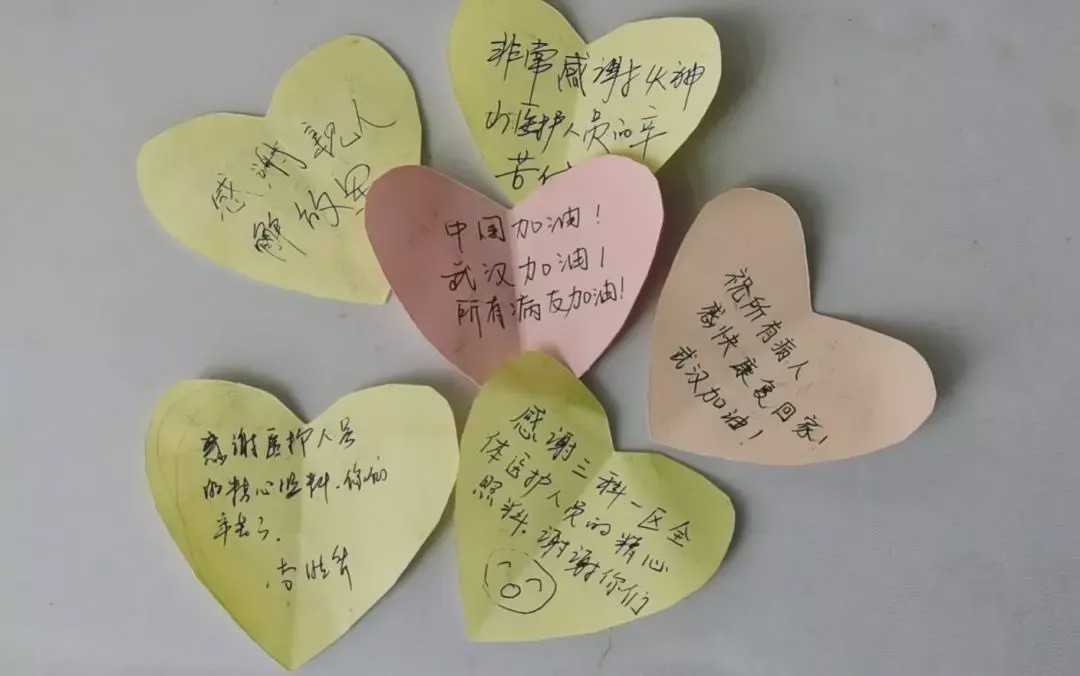 非常感谢火神
山医护人员的辛
苦
感谢亲人
解放
中国加油！
武汉加油！
所有病友加油！
祝所有病人
快康复回家！
武汉加油！
感谢医护人员
的精心照料.你们
辛苦了.
感谢三科一区全
体医护人员的精心
照料.谢谢你们